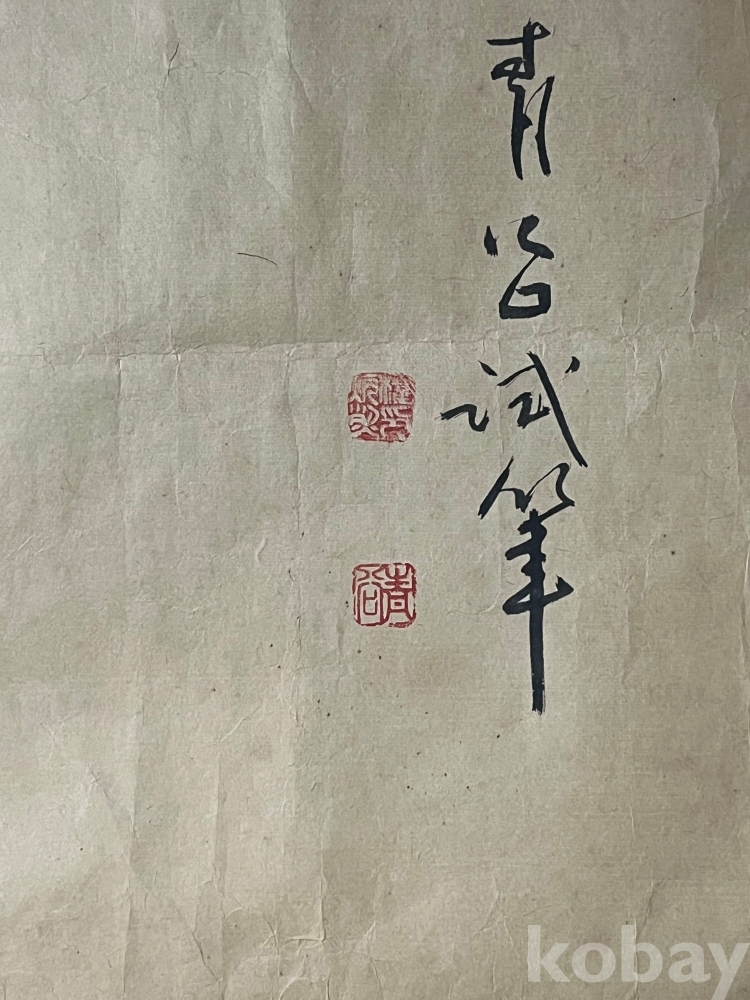 青谷試筆
青谷
kobay